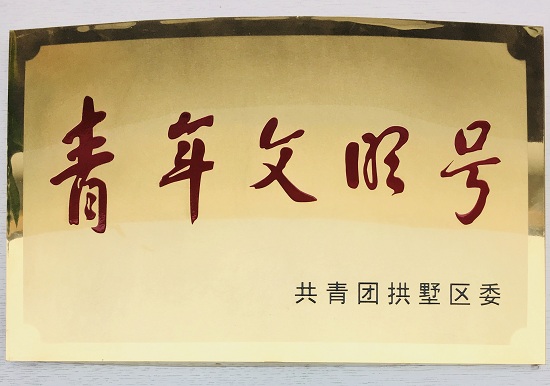 青年文明号
共青团拱墅区委